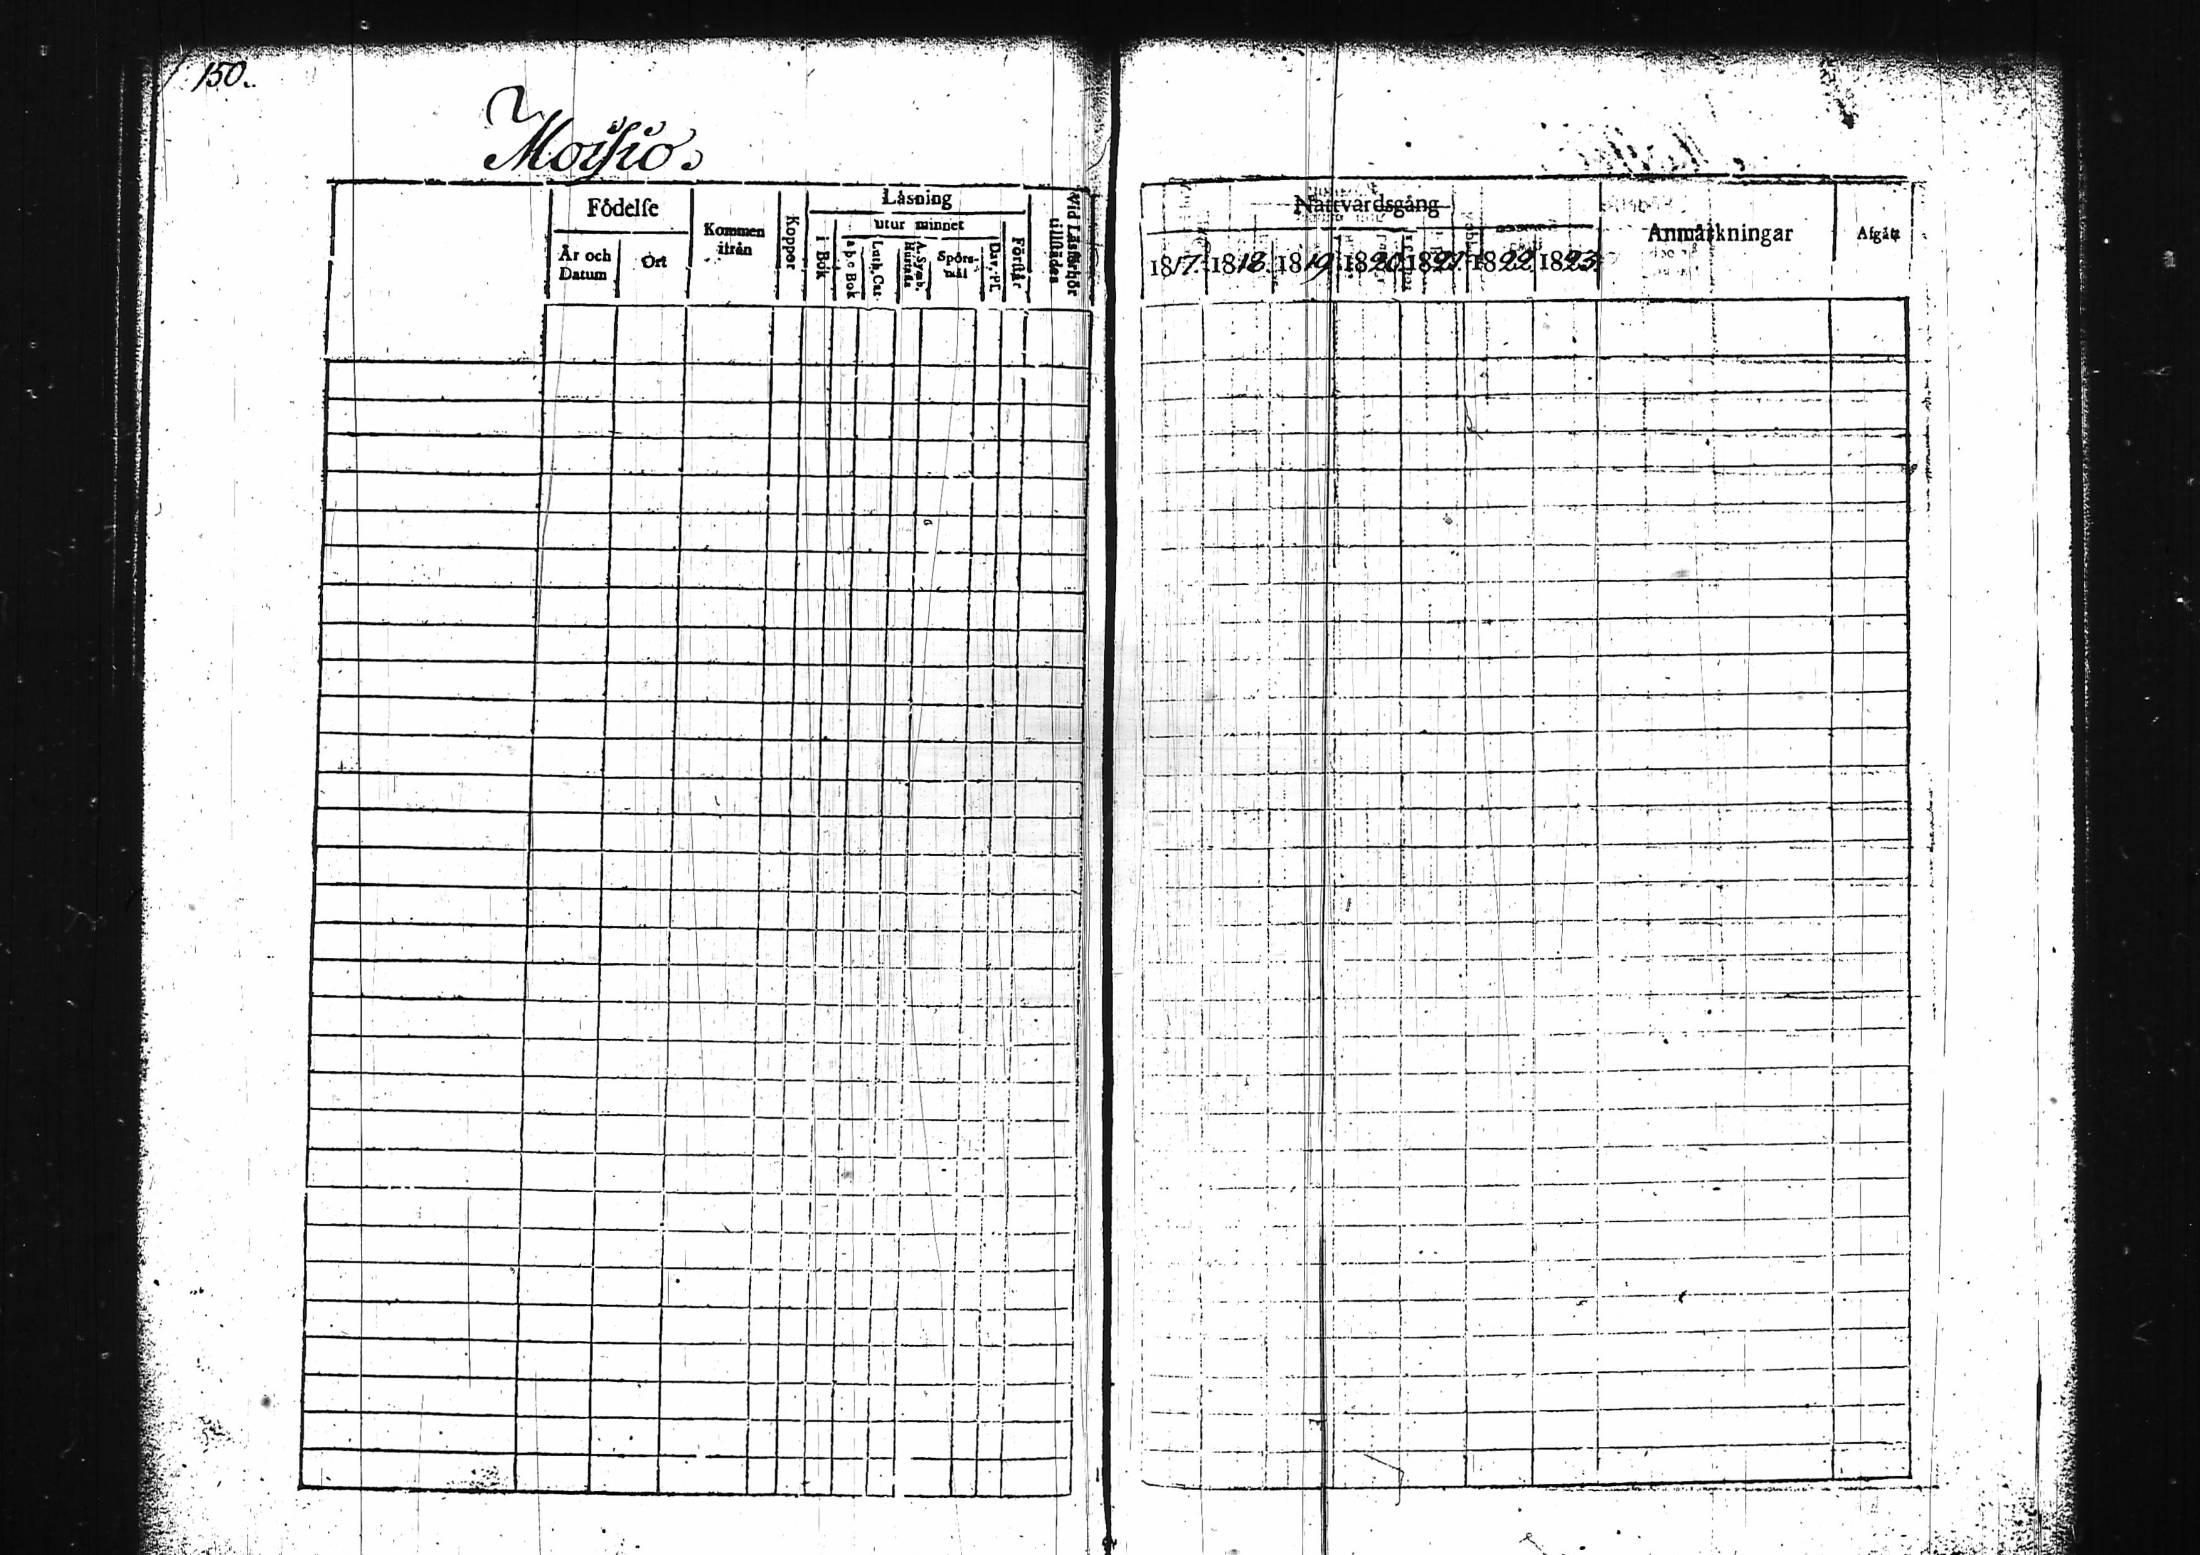 150.
Moisio.
Födelse
År och Datum
Ort
Kommen ifrån
Koppor
Läsning
i Bok
utur minnet
a b c Bok
Luth. Cat.
A. Symb. Hustafla
Spörsmål
Dav. Ps.
Förstår
Vid Läsförhör tillstädes
Nattvardsgång
1817. 1818. 1819. 1820. 1821. 1822. 1823.
Anmärkningar
Afgått